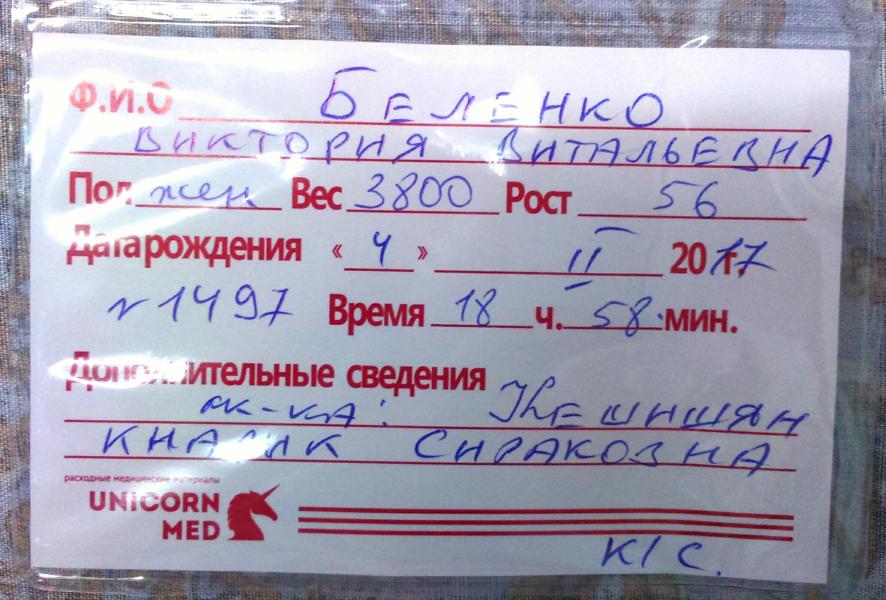 Ф.И.О БЕЛЕНКО
ВИКТОРИЯ ВИТАЛЬЕВНА
Пол жен Вес 3800 Рост 56
Дата рождения « 4 » II 2017
N 1497 Время 18 ч. 58 мин.
Дополнительные сведения
ак-ка: Кешишян
КНАРИК СИРАКОВНА
расходные медицинские материалы
UNICORN
MED
К/С.